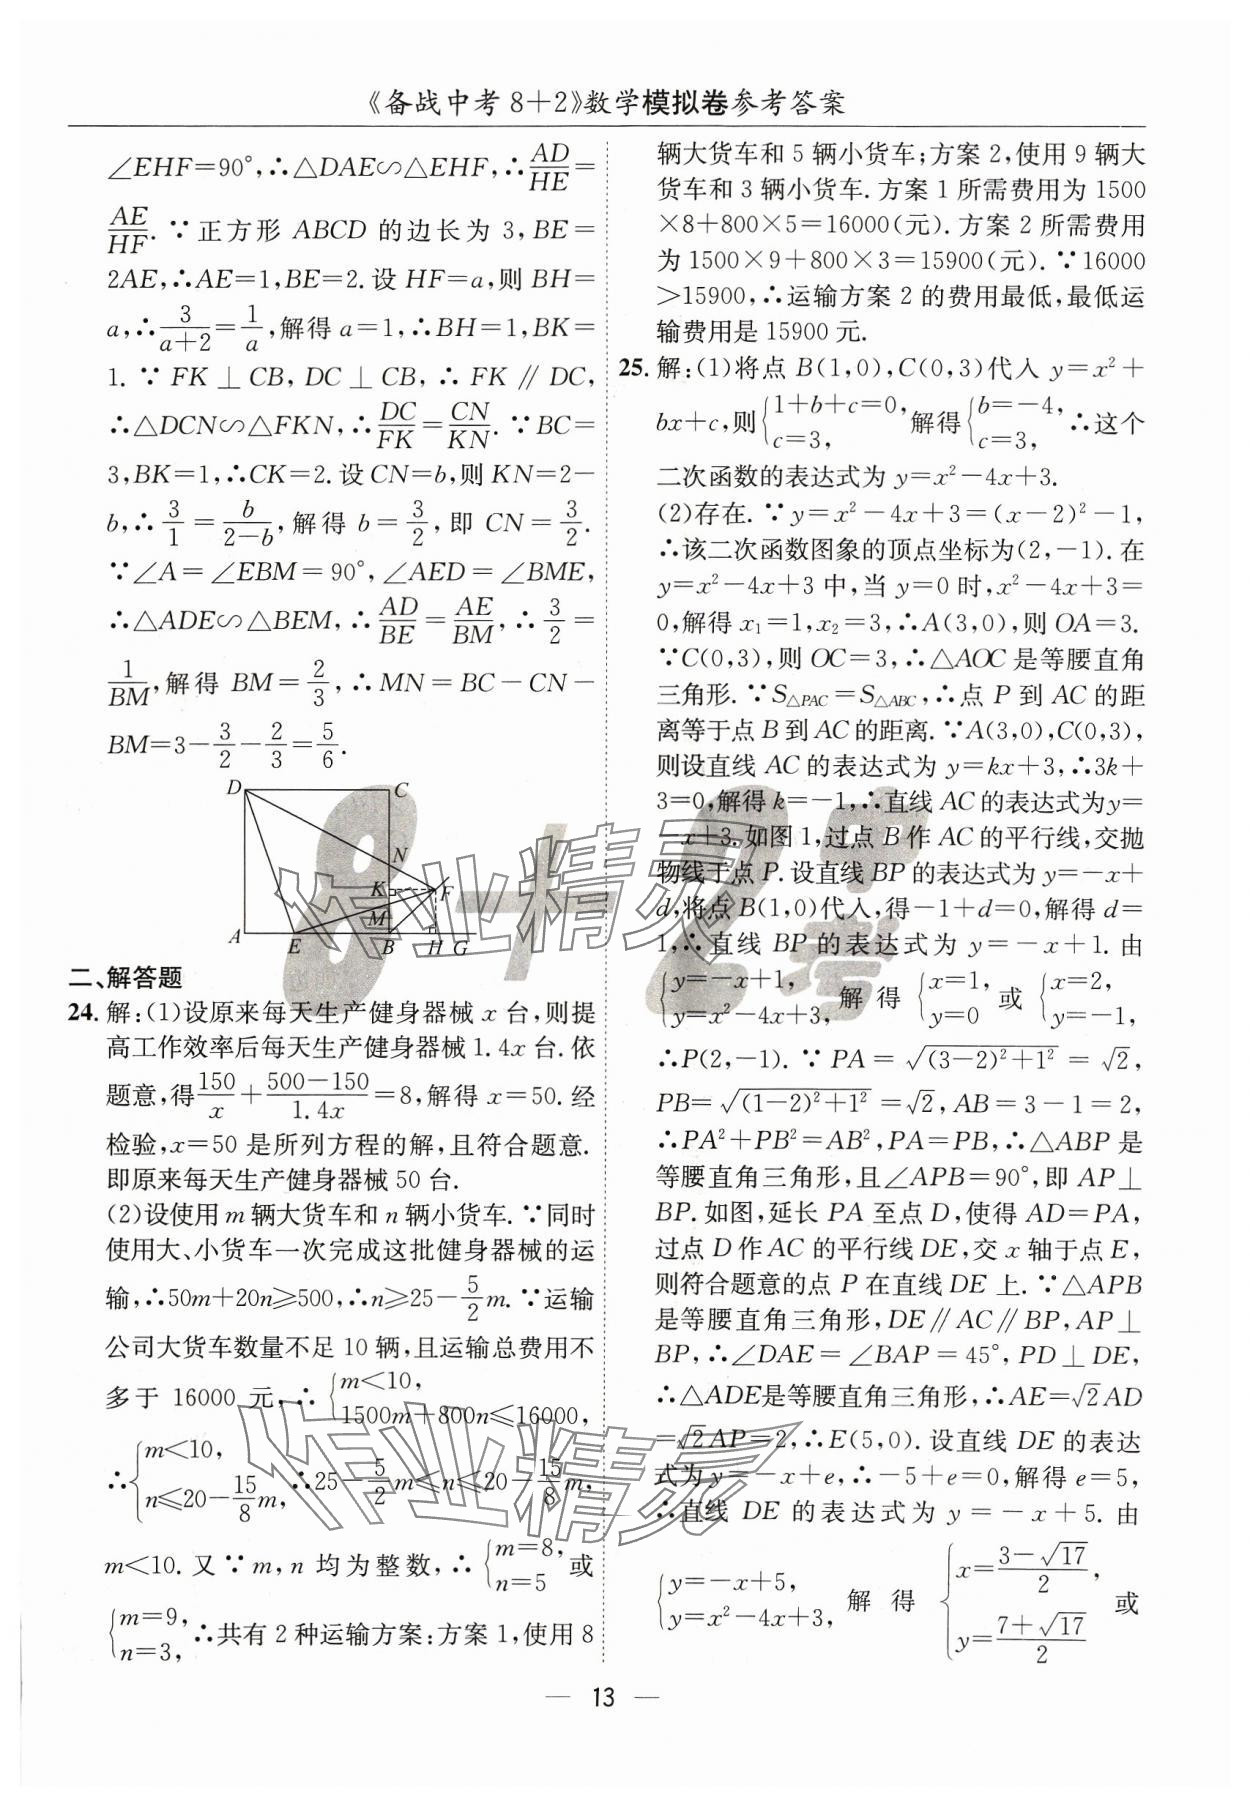 《备战中考8+2》数学模拟卷参考答案
∠EHF=90°,∴△DAE∽△EHF,∴AD/HE=
AE/HF.∵正方形 ABCD 的边长为 3,BE=
2AE,∴AE=1,BE=2.设 HF=a,则 BH=
a,∴3/(a+2)=1/a,解得 a=1,∴BH=1,BK=
1.∵FK⊥CB,DC⊥CB,∴FK∥DC,
∴△DCN∽△FKN,∴DC/FK=CN/KN.∵BC=
3,BK=1,∴CK=2.设 CN=b,则 KN=2-
b,∴3/1=b/(2-b),解得 b=3/2,即 CN=3/2.
∵∠A=∠EBM=90°,∠AED=∠BME,
∴△ADE∽△BEM,∴AD/BE=AE/BM,∴3/2=
1/BM,解得 BM=2/3,∴MN=BC-CN-
BM=3-3/2-2/3=5/6.
D C
N
K F
M
A E B H G
二、解答题
24.解:(1)设原来每天生产健身器械 x 台,则提
高工作效率后每天生产健身器械 1.4x 台.依
题意,得150/x+(500-150)/1.4x=8,解得 x=50.经
检验,x=50 是所列方程的解,且符合题意.
即原来每天生产健身器械 50 台.
(2)设使用 m 辆大货车和 n 辆小货车.∵同时
使用大、小货车一次完成这批健身器械的运
输,∴50m+20n≥500,∴n≥25-5/2m.∵运输
公司大货车数量不足 10 辆,且运输总费用不
多于 16000 元,∴{m<10,
1500m+800n≤16000,
∴{m<10,
n≤20-15/8m,∴25-5/2m≤n≤20-15/8m,
m<10.又∵m,n 均为整数,∴{m=8,
n=5或
{m=9,
n=3,∴共有 2 种运输方案:方案 1,使用 8
辆大货车和 5 辆小货车;方案 2,使用 9 辆大
货车和 3 辆小货车.方案 1 所需费用为 1500
×8+800×5=16000(元).方案 2 所需费用
为 1500×9+800×3=15900(元).∵16000
>15900,∴运输方案 2 的费用最低,最低运
输费用是 15900 元.
25.解:(1)将点 B(1,0),C(0,3)代入 y=x²+
bx+c,则{1+b+c=0,
c=3,解得{b=-4,
c=3,∴这个
二次函数的表达式为 y=x²-4x+3.
(2)存在.∵y=x²-4x+3=(x-2)²-1,
∴该二次函数图象的顶点坐标为(2,-1).在
y=x²-4x+3 中,当 y=0 时,x²-4x+3=
0,解得 x₁=1,x₂=3,∴A(3,0),则 OA=3.
∵C(0,3),则 OC=3,∴△AOC 是等腰直角
三角形.∵S△PAC=S△ABC,∴点 P 到 AC 的距
离等于点 B 到 AC 的距离.∵A(3,0),C(0,3),
则设直线 AC 的表达式为 y=kx+3,∴3k+
3=0,解得 k=-1,∴直线 AC 的表达式为 y=
-x+3.如图 1,过点 B 作 AC 的平行线,交抛
物线于点 P.设直线 BP 的表达式为 y=-x+
d,将点 B(1,0)代入,得-1+d=0,解得 d=
1,∴直线 BP 的表达式为 y=-x+1.由
{y=-x+1,
y=x²-4x+3,解得{x=1,
y=0或{x=2,
y=-1,
∴P(2,-1).∵PA=√((3-2)²+1²)=√2,
PB=√((1-2)²+1²)=√2,AB=3-1=2,
∴PA²+PB²=AB²,PA=PB,∴△ABP 是
等腰直角三角形,且∠APB=90°,即 AP⊥
BP.如图,延长 PA 至点 D,使得 AD=PA,
过点 D 作 AC 的平行线 DE,交 x 轴于点 E,
则符合题意的点 P 在直线 DE 上.∵△APB
是等腰直角三角形,DE∥AC∥BP,AP⊥
BP,∴∠DAE=∠BAP=45°,PD⊥DE,
∴△ADE是等腰直角三角形,∴AE=√2AD
=√2AP=2,∴E(5,0).设直线 DE 的表达
式为 y=-x+e,∴-5+e=0,解得 e=5,
∴直线 DE 的表达式为 y=-x+5.由
{y=-x+5,
y=x²-4x+3,解得{x=(3-√17)/2,
y=(7+√17)/2或
— 13 —
8+2中考
作业精灵
作业精灵